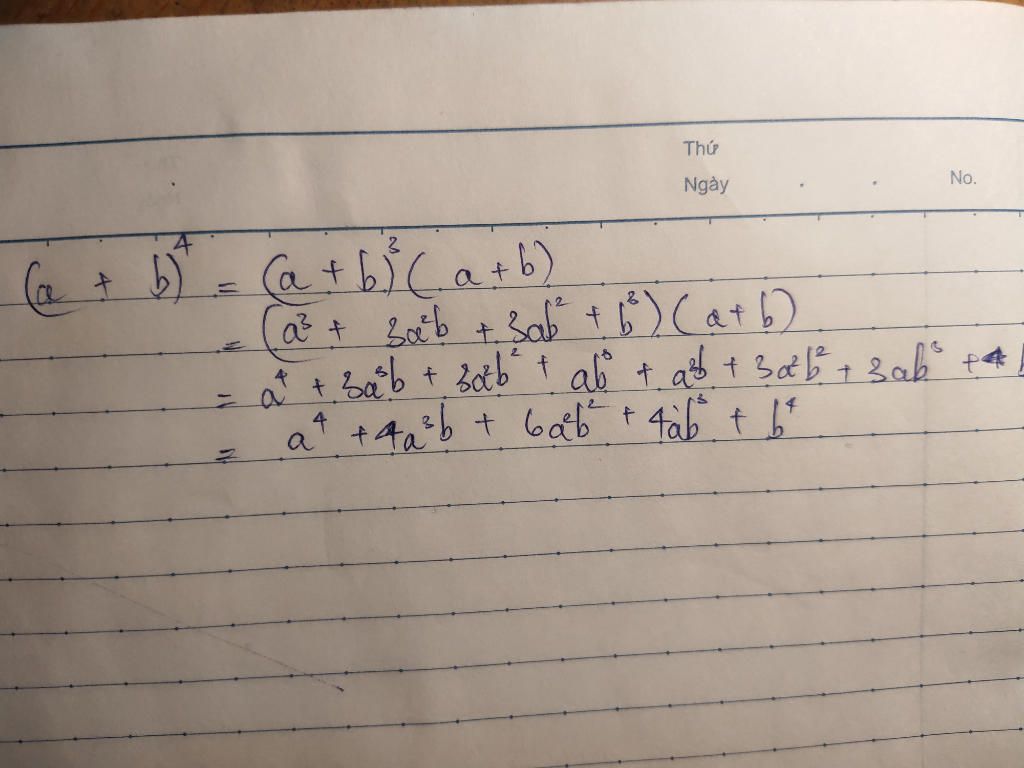 Thứ
Ngày . . No.
(a + b)⁴ = (a + b)³ (a + b)
= (a³ + 3a²b + 3ab² + b³) (a + b)
= a⁴ + 3a³b + 3a²b² + ab³ + a³b + 3a²b² + 3ab³ +
= a⁴ + 4a³b + 6a²b² + 4ab³ + b⁴